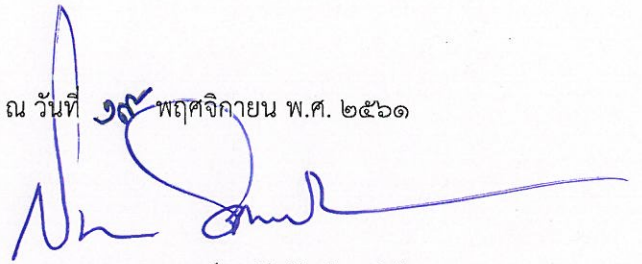 ณ วันที่ ๑๙ พฤศจิกายน พ.ศ. ๒๕๖๑